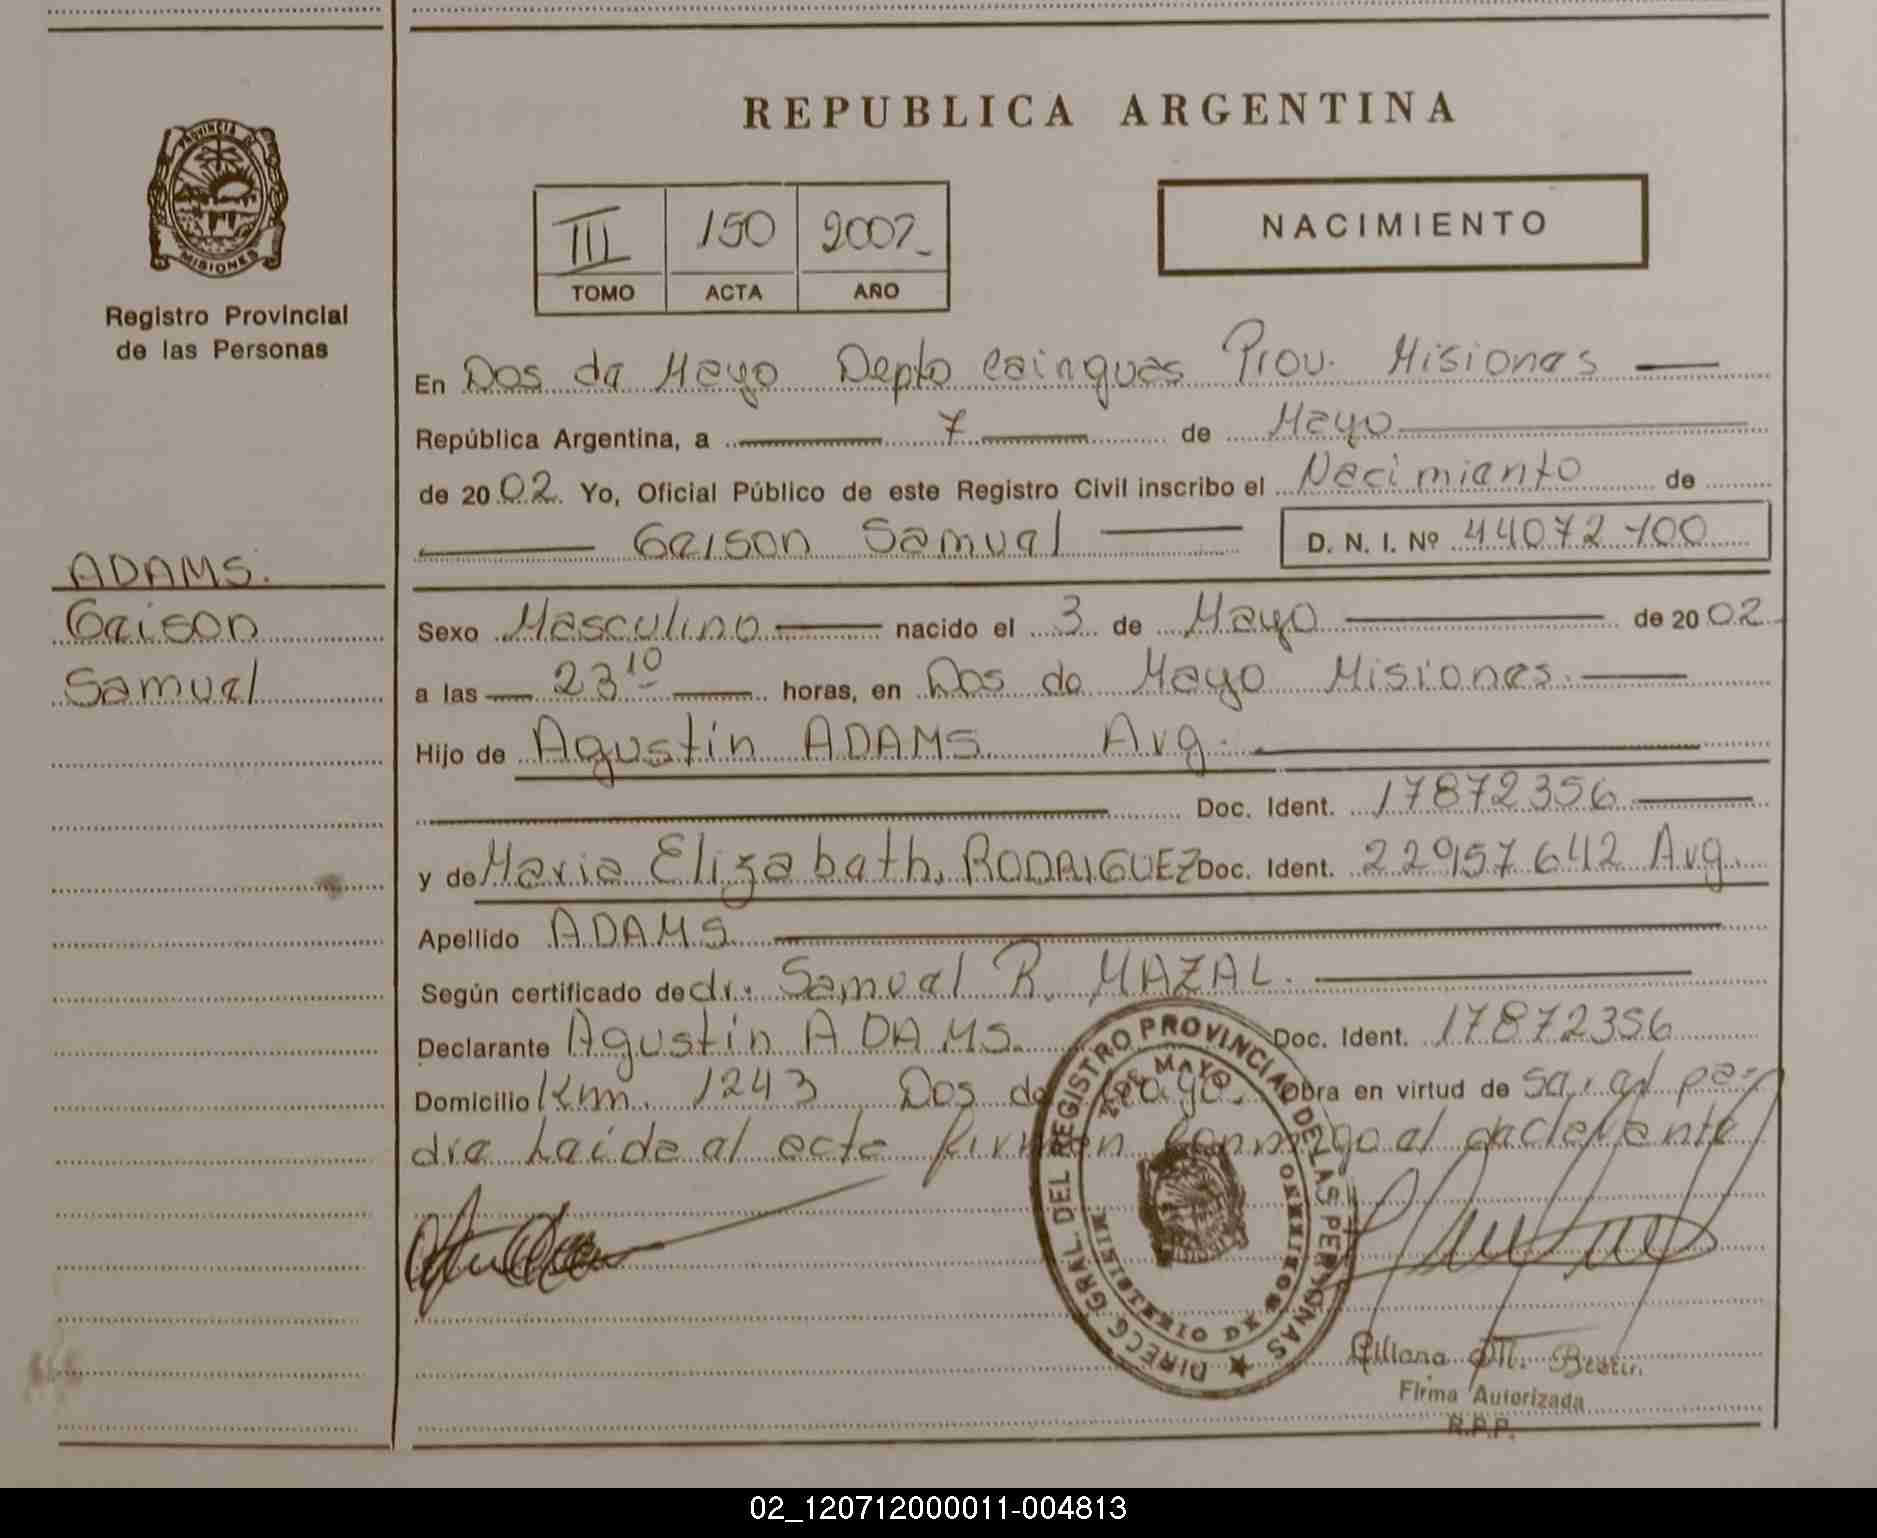 REPUBLICA ARGENTINA
PROVINCIA DE MISIONES
Registro Provincial
de las Personas
III 150 2002
TOMO ACTA AÑO
NACIMIENTO
En Dos de Mayo Depto Cainguas Prov. Misiones
República Argentina, a 7 de Mayo
de 2002. Yo, Oficial Público de este Registro Civil inscribo el Nacimiento de
Geison Samuel D. N. I. Nº 44072100
ADAMS.
Geison
Samuel
Sexo Masculino nacido el 3 de Mayo de 2002
a las 23 10 horas, en Dos de Mayo Misiones.
Hijo de Agustín ADAMS Arg.
Doc. Ident. 17872356
y de Maria Elizabeth, RODRIGUEZ Doc. Ident. 22957642 Arg.
Apellido ADAMS
Según certificado de dr. Samuel R. MAZAL.
Declarante Agustín ADAMS. Doc. Ident. 17872356
Domicilio Km. 1243 Dos de Mayo. Obra en virtud de ser el pa-
dre Leída el acta firman conmigo el declarante
DIRECC GRAL. DEL REGISTRO PROVINCIAL DE LAS PERSONAS
2 DE MAYO
MINISTERIO DE GOBIERNO
Liliana M.
Firma Autorizada
R.P.P.
02_120712000011-004813